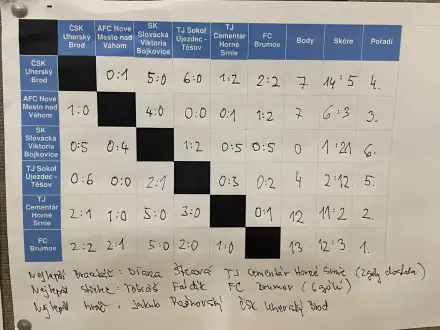 ČSK Uherský Brod AFC Nové Mesto nad Váhom SK Slovácká Viktoria Bojkovice TJ Sokol Újezdec - Těšov TJ Cementár Horné Srnie FC Brumov Body Skóre Pořadí
ČSK Uherský Brod 0:1 5:0 6:0 1:2 2:2 7 14:5 4.
AFC Nové Mesto nad Váhom 1:0 4:0 0:0 0:1 1:2 7 6:3 3.
SK Slovácká Viktoria Bojkovice 0:5 0:4 1:2 0:5 0:5 0 1:21 6.
TJ Sokol Újezdec - Těšov 0:6 0:0 2:1 0:3 0:2 4 2:12 5.
TJ Cementár Horné Srnie 2:1 1:0 5:0 3:0 0:1 12 11:2 2.
FC Brumov 2:2 2:1 5:0 2:0 1:0 13 12:3 1.
Nejlepší brankář: Diana TJ Cementár Horné Srnie (2góly dostala)
Nejlepší střelec: Tobiáš Faldík FC Brumov (6gólů)
Nejlepší hráč: Jakub ČSK Uherský Brod